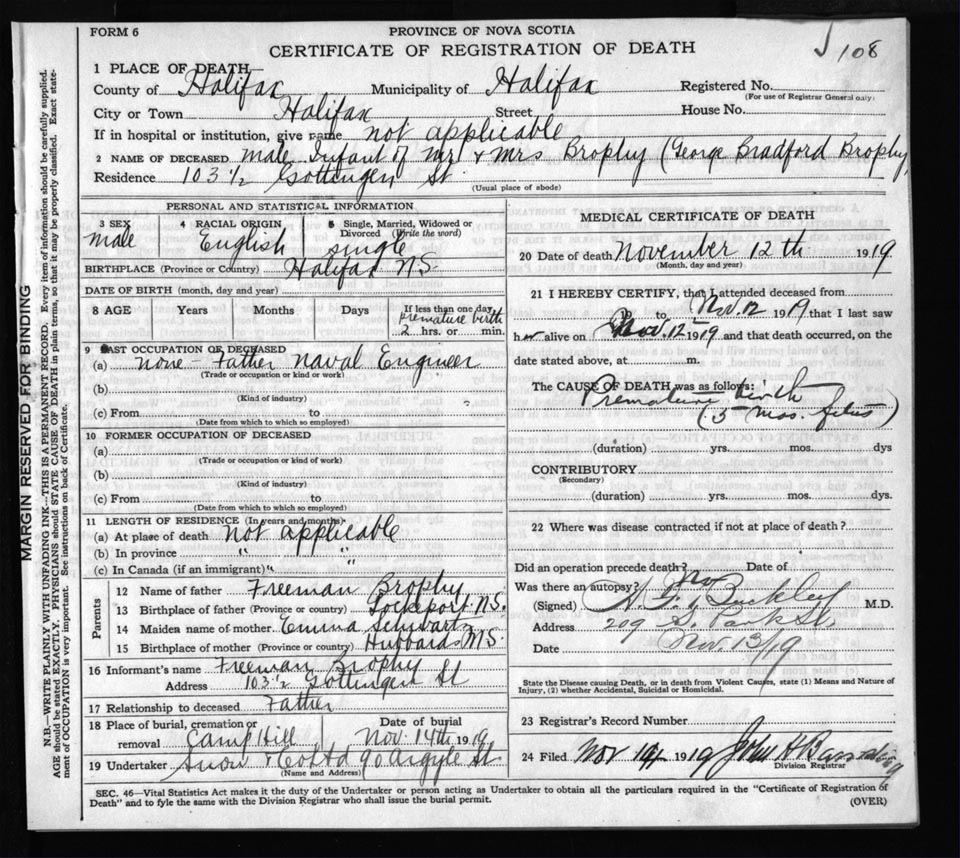 FORM 6
PROVINCE OF NOVA SCOTIA
CERTIFICATE OF REGISTRATION OF DEATH
J 108
1 PLACE OF DEATH
County of Halifax Municipality of Halifax Registered No.
(For use of Registrar General only.)
City or Town Halifax Street House No.
If in hospital or institution, give name not applicable
2 NAME OF DECEASED Male Infant of Mr & Mrs Brophy (George Bradford Brophy)
Residence 103 1/2 Gottingen St
(Usual place of abode)
PERSONAL AND STATISTICAL INFORMATION
3 SEX male 4 RACIAL ORIGIN English 5 Single, Married, Widowed or Divorced (Write the word) single
BIRTHPLACE (Province or Country) Halifax NS
DATE OF BIRTH (month, day and year)
8 AGE Years Months Days If less than one day
premature birth
2 hrs. or min.
9 LAST OCCUPATION OF DECEASED
(a) none - Father Naval Engineer
(Trade or occupation or kind or work)
(b)
(Kind of industry)
(c) From to
(Date from which to which so employed)
10 FORMER OCCUPATION OF DECEASED
(a)
(Trade or occupation or kind of work)
(b)
(Kind of industry)
(c) From to
(Date from which to which so employed)
11 LENGTH OF RESIDENCE (In years and months)
(a) At place of death not applicable
(b) In province " "
(c) In Canada (if an immigrant) "
Parents
12 Name of father Freeman Brophy
13 Birthplace of father (Province or country) Lockeport NS.
14 Maiden name of mother Emma Schwartz
15 Birthplace of mother (Province or country) Hubbards NS
16 Informant's name Freeman Brophy
Address 103 1/2 Gottingen St
17 Relationship to deceased Father
18 Place of burial, cremation or removal Camp Hill Date of burial Nov 14th 1919
19 Undertaker Snow & Co Ltd 90 Argyle St
(Name and Address)
MEDICAL CERTIFICATE OF DEATH
20 Date of death November 12th 1919
(Month, day and year)
21 I HEREBY CERTIFY, that I attended deceased from
to Nov. 12 1919 that I last saw
h alive on Nov. 12 1919 and that death occurred, on the
date stated above, at m.
The CAUSE OF DEATH was as follows:
Premature birth
(5 mos. fetus)
(duration) yrs. mos. dys
CONTRIBUTORY
(Secondary)
(duration) yrs. mos. dys.
22 Where was disease contracted if not at place of death?
Did an operation precede death? Date of
Was there an autopsy? No
(Signed) Buckley M.D.
Address 209 S. Park St
Date Nov. 13/19
State the Disease causing Death, or in death from Violent Causes, state (1) Means and Nature of
Injury, (2) whether Accidental, Suicidal or Homicidal.
23 Registrar's Record Number
24 Filed Nov 1919 John
Division Registrar
SEC. 46—Vital Statistics Act makes it the duty of the Undertaker or person acting as Undertaker to obtain all the particulars required in the "Certificate of Registration of
Death" and to fyle the same with the Division Registrar who shall issue the burial permit.
(OVER)
MARGIN RESERVED FOR BINDING
N.B.—WRITE PLAINLY WITH UNFADING INK—THIS IS A PERMANENT RECORD. Every item of information should be carefully supplied.
AGE should be stated EXACTLY. PHYSICIANS should STATE CAUSE OF DEATH in plain terms, so that it may be properly classified. Exact state-
ment of OCCUPATION is very important. See instructions on back of Certificate.